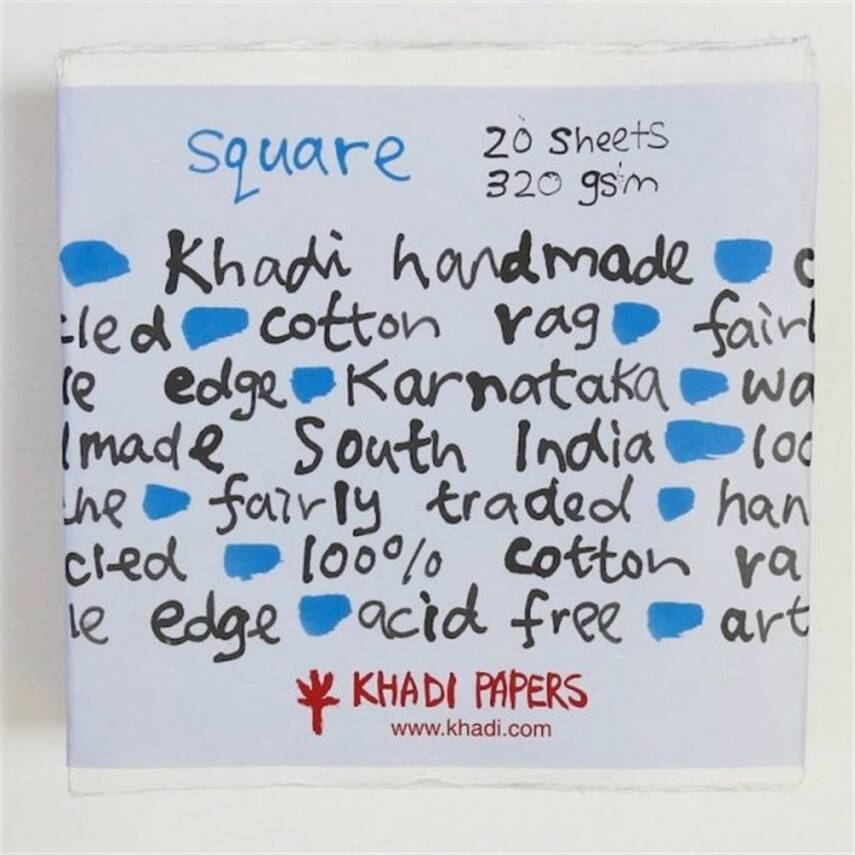 square
20 sheets
320 gsm
Khadi handmade c
cled cotton rag fairl
le edge Karnataka wa
dmade South India 100
the fairly traded han
cled 100% cotton ra
le edge acid free art
KHADI PAPERS
www.khadi.com